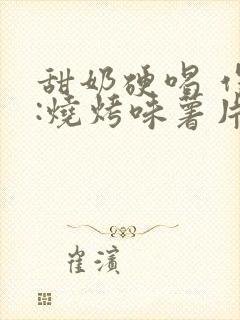 甜奶硬唱
:燒烤味薯片
崔濱